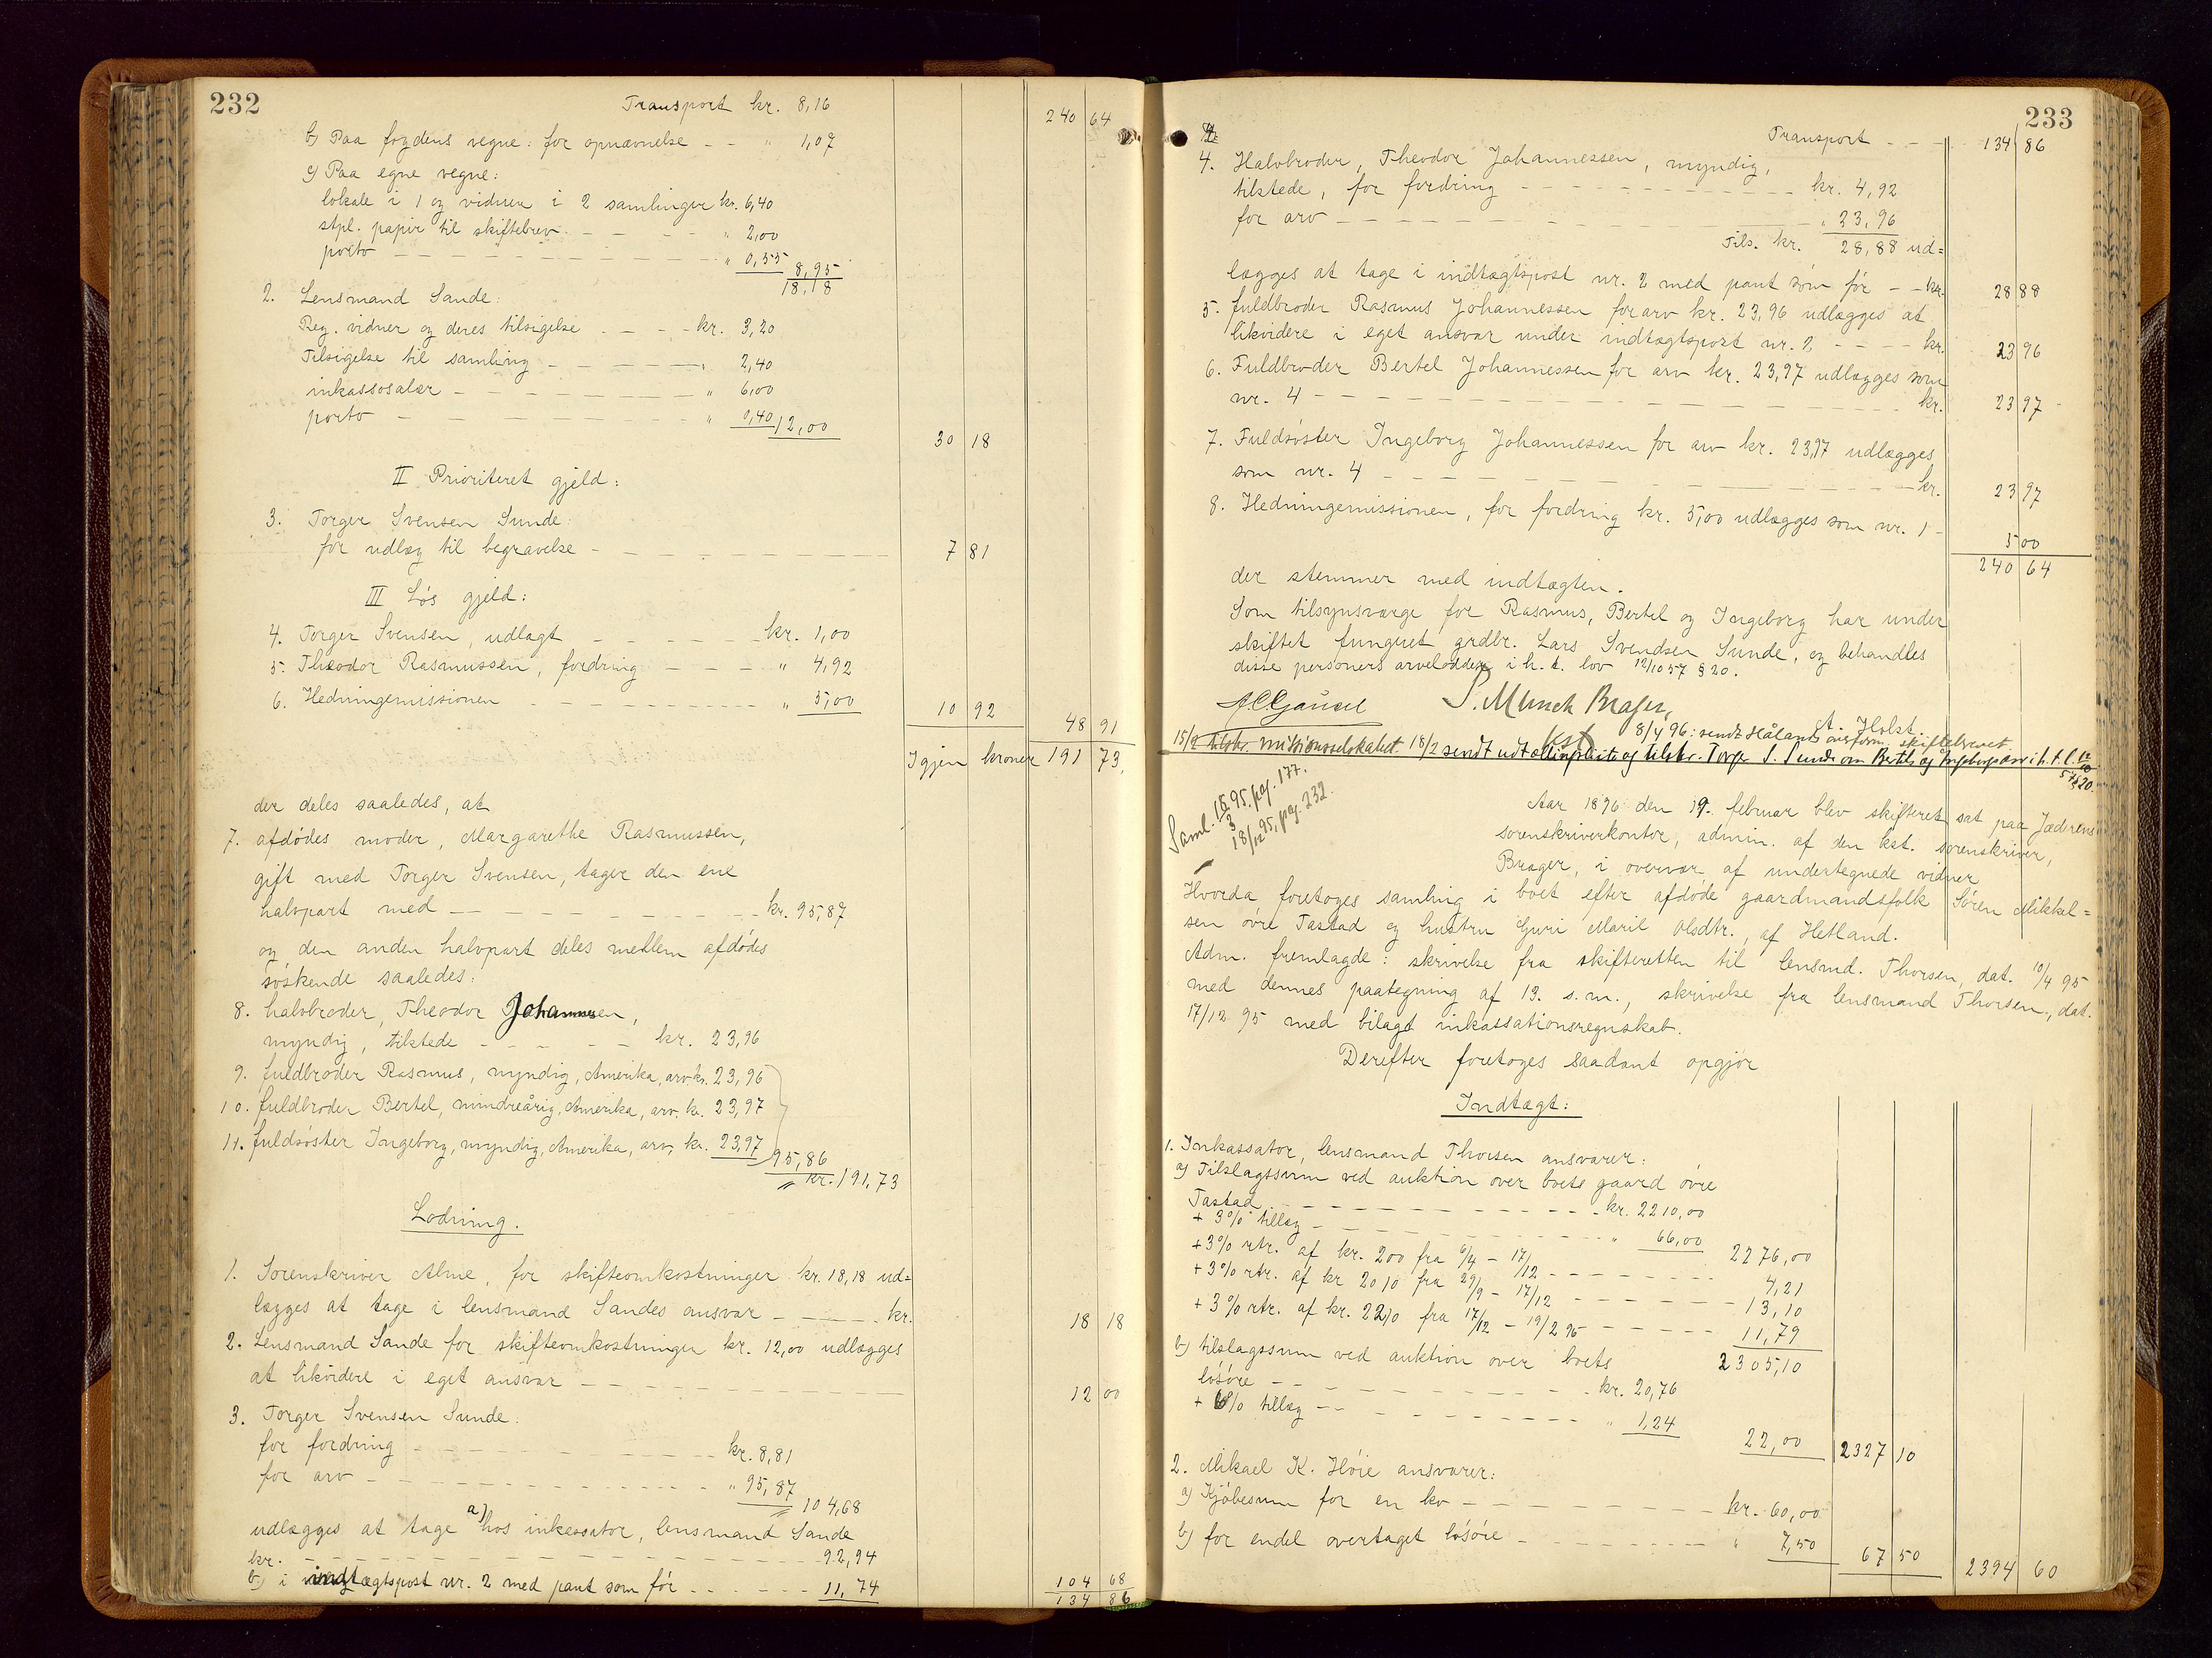 232
Transport kr. 8,16
240 64
b) Paa fogdens vegne: for opnævnelse - - " 1,07
c) Paa egne vegne:
lokale i 1 og vidner i 2 samlinger kr. 6,40
stpl. papir til skiftebrev - - - - " 2,00
porto - - - - " 0,55 8,95
18,18
2. Lensmand Sande:
Reg. vidner og deres tilsigelse - - - - kr. 3,20
Tilsigelse til samling - - - - " 2,40
inkassosalær - - - - " 6,00
porto - - - - " 0,40 12,00
30 18
II Prioriteret gjeld:
3. Torger Svensen Sunde:
for udlæg til begravelse - - - - 7 81
III Løs gjeld:
4. Torger Svensen, udlagt - - - - kr. 1,00
5. Theodor Rasmussen, fordring - - - - " 4,92
6. Hedningemissionen - - - - " 5,00
10 92 48 91
Igjen kroner 191 73,
der deles saaledes, at
7. afdødes moder, Margarethe Rasmussen,
gift med Torger Svensen, tager den ene
halvpart med - - - - kr. 95,87
og den anden halvpart deles mellem afdødes
søskende saaledes:
8. halvbroder, Theodor Johannessen,
myndig, tilstede - - - - kr. 23,96
9. fuldbroder Rasmus, myndig, Amerika, arv. kr. 23,96
10. fuldbroder Bertel, mindreårig, Amerika, arv. kr. 23,97
11. fuldsøster Ingeborg, myndig, Amerika, arv, kr. 23,97
95,86
kr. 191,73
Lodning.
1. Sorenskriver Alme, for skifteomkostninger kr. 18,18 ud=
lægges at tage i lensmand Sandes ansvar - - - - kr. 18 18
2. Lensmand Sande for skifteomkostninger kr. 12,00 udlægges
at likvidere i eget ansvar - - - - 12 00
3. Torger Svensen Sunde:
for fordring - - - - kr. 8,81
for arv - - - - " 95,87 104,68
udlægges at tage a) hos inkassator, lensmand Sande
kr. - - - - 92,94
b) i indtægtspost nr. 2 med pant som før - - - - 11,74
104 68
134 86
233
Transport - - - 134 86
4. Halvbroder, Theodor Johannessen, myndig,
tilstede, for fordring - - - - kr. 4,92
for arv - - - - " 23,96
Tils. kr. 28,88 ud=
lægges at tage i indtægtspost nr. 2 med pant som før - - kr. 28 88
5. fuldbroder Rasmus Johannessen for arv kr. 23,96 udlægges at
likvidere i eget ansvar under indtægtspost nr. 2 - - - - kr. 23 96
6. Fuldbroder Bertel Johannessen for arv kr. 23,97 udlægges som
nr. 4 - - - - kr. 23 97
7. Fuldsøster Ingeborg Johannessen for arv kr. 23,97 udlægges
som nr. 4 - - - - kr. 23 97
8. Hedningemissionen, for fordring kr. 5,00 udlægges som nr. 1 - 5 00
240 64
der stemmer med indtægten.
Som tilsynsværge for Rasmus, Bertel og Ingeborg har under
skiftet fungeret grdbr. Lars Svendsen Sunde, og behandles
disse personers arvelodder i h. t. lov 12/10 57 § 20.
A. C. Gausel S. Munch Brager,
kst
A. Holst
8/4 96: sendt Hålands skiftebrevet
15/2 tilskr. missionsselskabet. 18/2 sendt udt og tilskr. Torger S. Sunde om Bertels og Ingeborgs arv i h. t. l. 12/10
57 § 20.
Saml. 15/3 95. pag. 177.
18/12 95, pag. 232.
Aar 1896 den 19. februar blev skifteret sat paa Jæderens
sorenskriverkontor, admin. af den kst. sorenskriver,
Brager, i overvær af undertegnede vidner
Hvorda foretoges samling i boet efter afdøde gaardmandsfolk Søren Mikkel=
sen øvre Tastad og hustru Guri Maril Olsdtr., af Hetland.
Adm. fremlagde: skrivelse fra skifteretten til lensmd. Thorsen, dat. 10/4 95
med dennes paategning af 13. s. m., skrivelse fra lensmand Thorsen, dat.
17/12 95 med bilagt inkassationsregnskab.
Derefter foretoges saadant opgjør
Indtægt:
1. Inkassator, lensmand Thorsen ansvarer:
a) Tilslagssum ved auktion over boets gaard øvre
Tastad - - - - kr. 2210,00
+ 3% tillæg - - - - " 66,00 2276,00
+ 3% rtr. af kr. 200 fra 6/4 - 17/12 - - - - 4,21
+ 3% rtr. af kr 2010 fra 29/9 - 17/12 - - - - 13,10
+ 3% rtr. af kr. 2210 fra 17/12 - 19/2 96 - - - - 11,79
2305,10
b) tilslagssum ved auktion over boets
løsøre - - - - kr. 20,76
+ 6% tillæg - - - - " 1,24 22,00 2327 10
2. Mikael K. Høie ansvarer:
a) Kjøbesum for en ko - - - - kr. 60,00
b) for endel overtaget løsøre - - - - " 7,50 67 50 2394 60